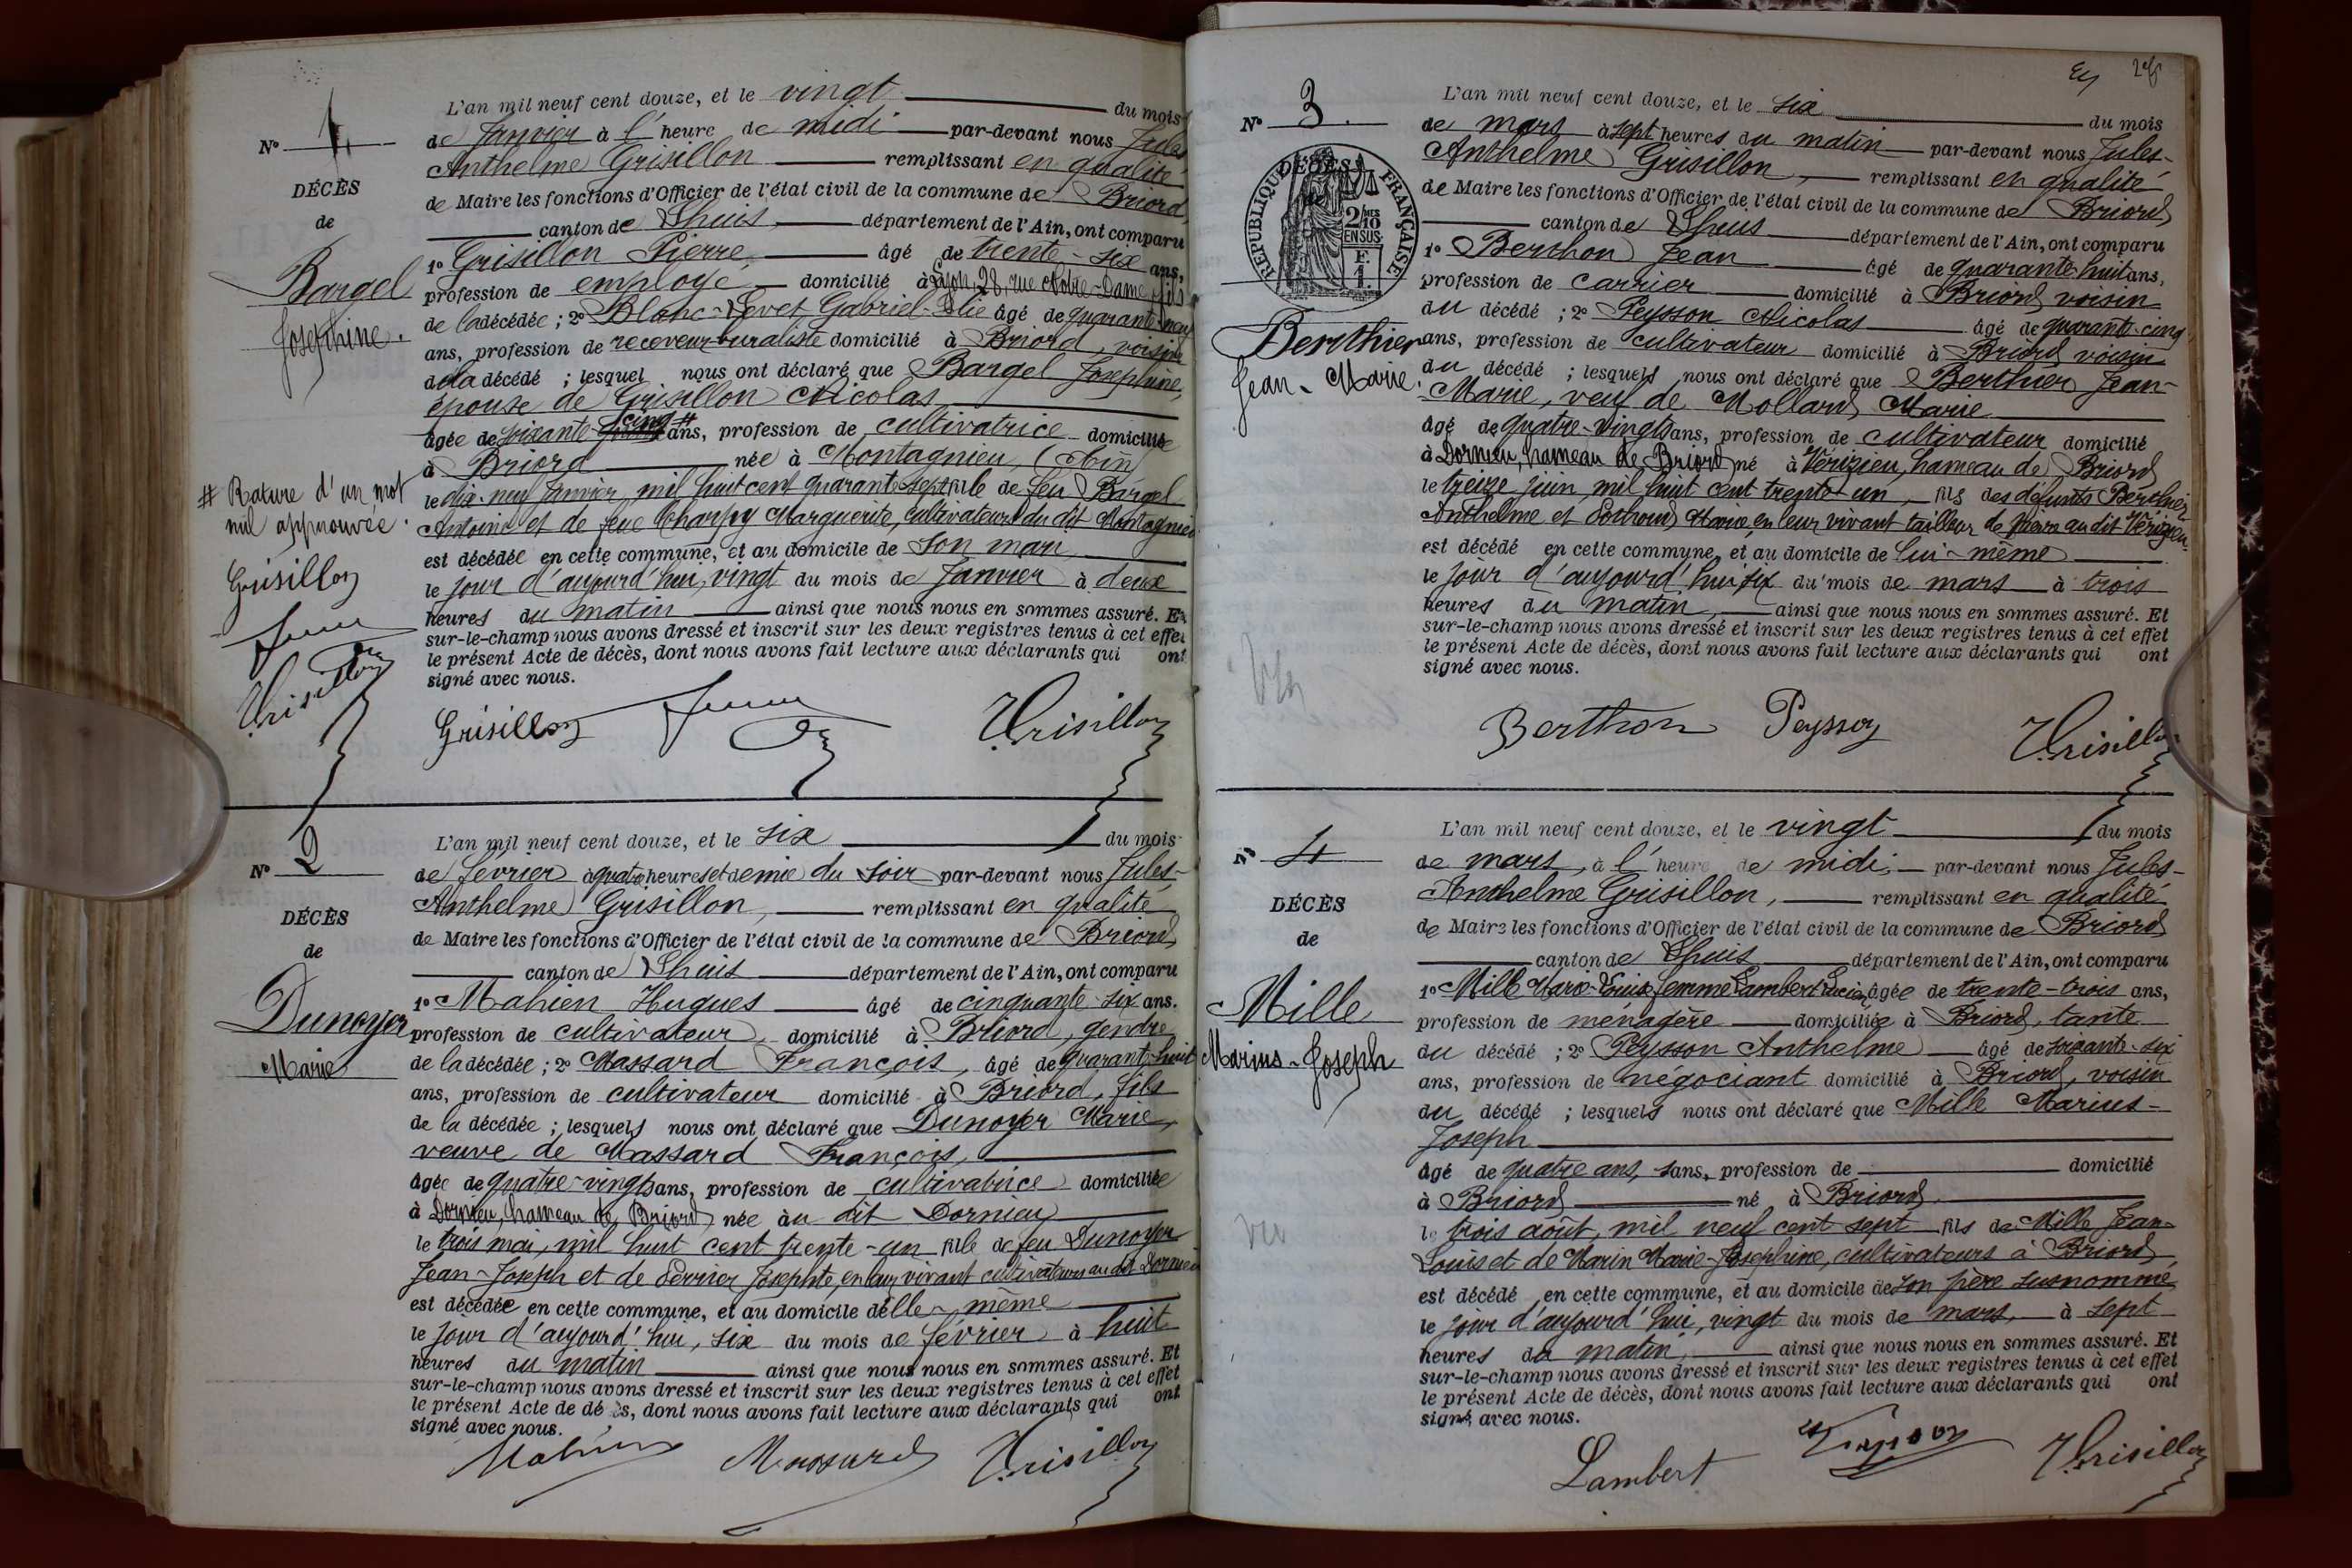 N° 1
DÉCÈS
de
Bargel
Josephine.
# Rature d'un mot
nul approuvée.
Grisillon
Grisillon
L'an mil neuf cent douze, et le vingt du mois
de Janvier à l'heure de midi par-devant nous Jules
Anthelme Grisillon remplissant en qualité
de Maire les fonctions d'Officier de l'état civil de la commune de Briord
canton de Lhuis département de l'Ain, ont comparu
1° Grisillon Pierre âgé de trente-six ans,
profession de employé, domicilié à Lyon, 28, rue Notre-Dame, fils
de la décédée ; 2° Blanc-Levet Gabriel-Elie âgé de quarante-neuf
ans, profession de receveur buraliste domicilié à Briord, voisin
de la décédé ; lesquel nous ont déclaré que Bargel Josephine,
épouse de Grisillon Nicolas
cinq #
âgée de soixante- ans, profession de cultivatrice domiciliée
à Briord née à Montagnieu, (Ain)
le dix-neuf Janvier mil huit cent quarante-sept fille de feu Bargel
Antoine et de feue Charpy Marguerite, cultivateurs du dit Montagnieu
est décédée en cette commune, et au domicile de son mari
le jour d'aujourd'hui, vingt du mois de Janvier à deux
heures du matin ainsi que nous nous en sommes assuré. Et
sur-le-champ nous avons dressé et inscrit sur les deux registres tenus à cet effet
le présent Acte de décès, dont nous avons fait lecture aux déclarants qui ont
signé avec nous.
Grisillon Grisillon
N° 2
DÉCÈS
de
Dunoyer
Marie
L'an mil neuf cent douze, et le six du mois
de février à quatre heures et demie du soir par-devant nous Jules-
Anthelme Grisillon, remplissant en qualité
de Maire les fonctions d'Officier de l'état civil de la commune de Briord
canton de Lhuis département de l'Ain, ont comparu
1° Mahien Hugues âgé de cinquante-six ans.
profession de cultivateur, domicilié à Briord, gendre
de la décédée ; 2° Massard François, âgé de quarante-huit
ans, profession de cultivateur domicilié à Briord, fils
de la décédée ; lesquels nous ont déclaré que Dunoyer Marie,
veuve de Massard François,
âgée de quatre-vingts ans, profession de cultivatrice domiciliée
à Dornieu, hameau de Briord née àu dit Dornieu
le trois mai, mil huit cent trente-un fille de feu Dunoyer
Jean-Joseph et de Perrier Josephte, en leur vivant cultivateurs au dit Dornieu
est décédée en cette commune, et au domicile d'elle-même
le jour d'aujourd'hui, six du mois de février à huit
heures du matin ainsi que nous nous en sommes assuré. Et
sur-le-champ nous avons dressé et inscrit sur les deux registres tenus à cet effet
le présent Acte de décès, dont nous avons fait lecture aux déclarants qui ont
signé avec nous.
Mahien Massard Grisillon
N° 3.
DÉCÈS
de
RÉPUBLIQUE FRANÇAISE
2/10 MES
EN SUS
F.
1.
Berthier
Jean-Marie.
L'an mil neuf cent douze, et le six du mois
de mars à sept heures du matin par-devant nous Jules-
Anthelme Grisillon, remplissant en qualité
de Maire les fonctions d'Officier de l'état civil de la commune de Briord
canton de Lhuis département de l'Ain, ont comparu
1° Berthon Jean âgé de quarante-huit ans,
profession de carrier domicilié à Briord voisin
du décédé ; 2° Peysson Nicolas âgé de quarante-cinq
ans, profession de cultivateur domicilié à Briord voisin
du décédé ; lesquels nous ont déclaré que Berthier Jean-
Marie, veuf de Mollard Marie
âgé de quatre-vingts ans, profession de cultivateur domicilié
à Dornieu, hameau de Briord né à Vérizieu, hameau de Briord
le treize juin mil huit cent trente-un, fils des défunts Berthier
Anthelme et Marie, en leur vivant tailleur de pierre au dit Vérizieu.
est décédé en cette commune, et au domicile de lui-même
le jour d'aujourd'hui six du mois de mars à trois
heures du matin, ainsi que nous nous en sommes assuré. Et
sur-le-champ nous avons dressé et inscrit sur les deux registres tenus à cet effet
le présent Acte de décès, dont nous avons fait lecture aux déclarants qui ont
signé avec nous.
Berthon Peysson Grisillon
N° 4
DÉCÈS
de
Mille
Marius-Joseph
vu
L'an mil neuf cent douze, et le vingt du mois
de mars, à l'heure de midi, par-devant nous Jules-
Anthelme Grisillon, remplissant en qualité
de Maire les fonctions d'Officier de l'état civil de la commune de Briord
canton de Lhuis département de l'Ain, ont comparu
1° Mille Marie-Louise femme Lambert Lucien, âgée de trente-trois ans,
profession de ménagère domiciliée à Briord, tante
du décédé ; 2° Peysson Anthelme âgé de soixante-six
ans, profession de négociant domicilié à Briord, voisin
du décédé ; lesquels nous ont déclaré que Mille Marius-
Joseph
âgé de quatre ans, sans, profession de domicilié
à Briord né à Briord.
le trois août, mil neuf cent sept fils de Mille Jean-
Louis et de Marin Marie-Josephine, cultivateurs à Briord
est décédé en cette commune, et au domicile de son père susnommé
le jour d'aujourd'hui, vingt du mois de mars, à sept
heures du matin, ainsi que nous nous en sommes assuré. Et
sur-le-champ nous avons dressé et inscrit sur les deux registres tenus à cet effet
le présent Acte de décès, dont nous avons fait lecture aux déclarants qui ont
signé avec nous.
Lambert Peysson Grisillon